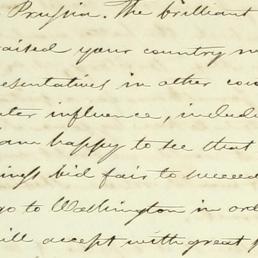 Prussia. The brilliant
raised your country
resentatives in other cou
ter influence, includ
am happy to see that
iness bid fair to succeed
go to Washington in ord
ill accept with great p